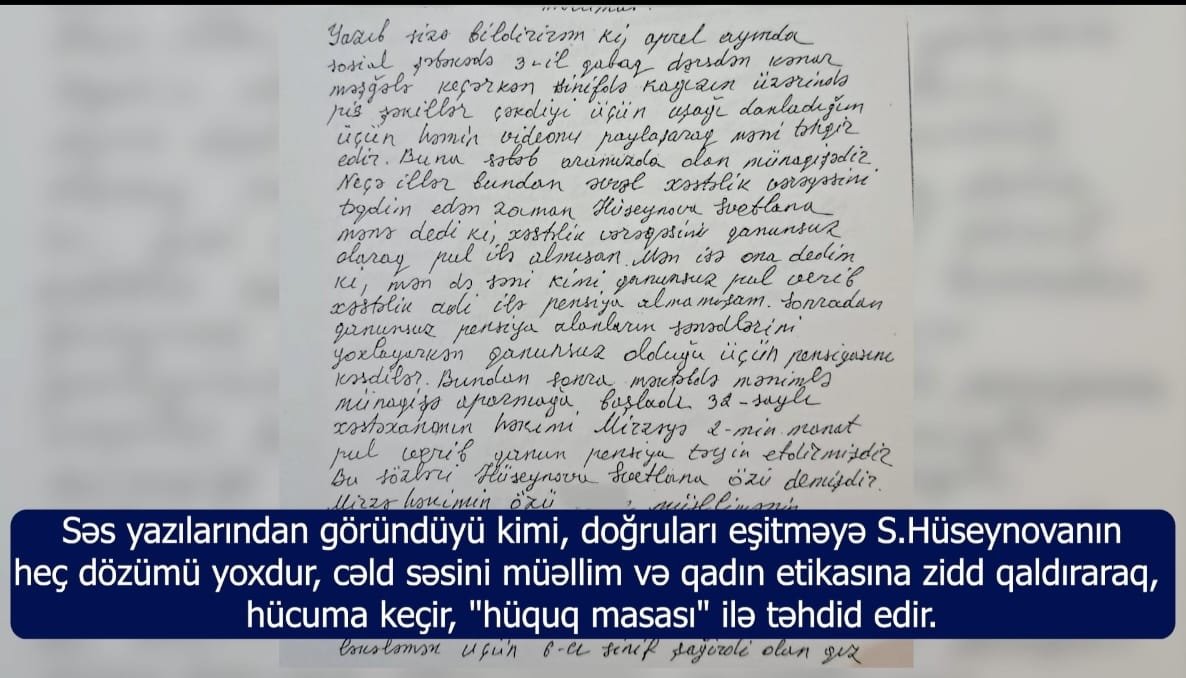 Yazıb sizə bildirirəm ki, aprel ayında
sosial şəbəkədə 3-il qabaq dərsdən kənar
məşğələ keçərkən sinifdə kağızın üzərində
pis şəkillər çəkdiyi üçün uşağı danladığım
üçün həmin videonu paylaşaraq məni təhqir
edir. Buna səbəb aramızda olan münaqişədir
Neçə illər bundan əvvəl xəstəlik vərəqəsini
təqdim edən zaman Hüseynova Svetlana
mənə dedi ki, xəstəlik vərəqəsini qanunsuz
olaraq pul ilə almısan. Mən isə ona dedim
ki, mən də səni kimi qanunsuz pul verib
xəstəlik adi ilə pensiya almamışam. Sonradan
qanunsuz pensiya alanların sənədlərini
yoxlayarkən qanunsuz olduğu üçün pensiyasını
kəsdilər. Bundan sonra məktəbdə mənimlə
münaqişə aparmağa başladı. 32-saylı
xəstəxananın həkimi Mirzəyə 2-min manat
pul verib qanun pensiya təyin etdirmişdir
Bu sözləri Hüseynova Svetlana özü demişdir.
Mirzə həkimin özü müəllimənin
Səs yazılarından göründüyü kimi, doğruları eşitməyə S.Hüseynovanın
heç dözümü yoxdur, cəld səsini müəllim və qadın etikasına zidd qaldıraraq,
hücuma keçir, "hüquq masası" ilə təhdid edir.
üçün 6-cı sinif şagirdi olan qız